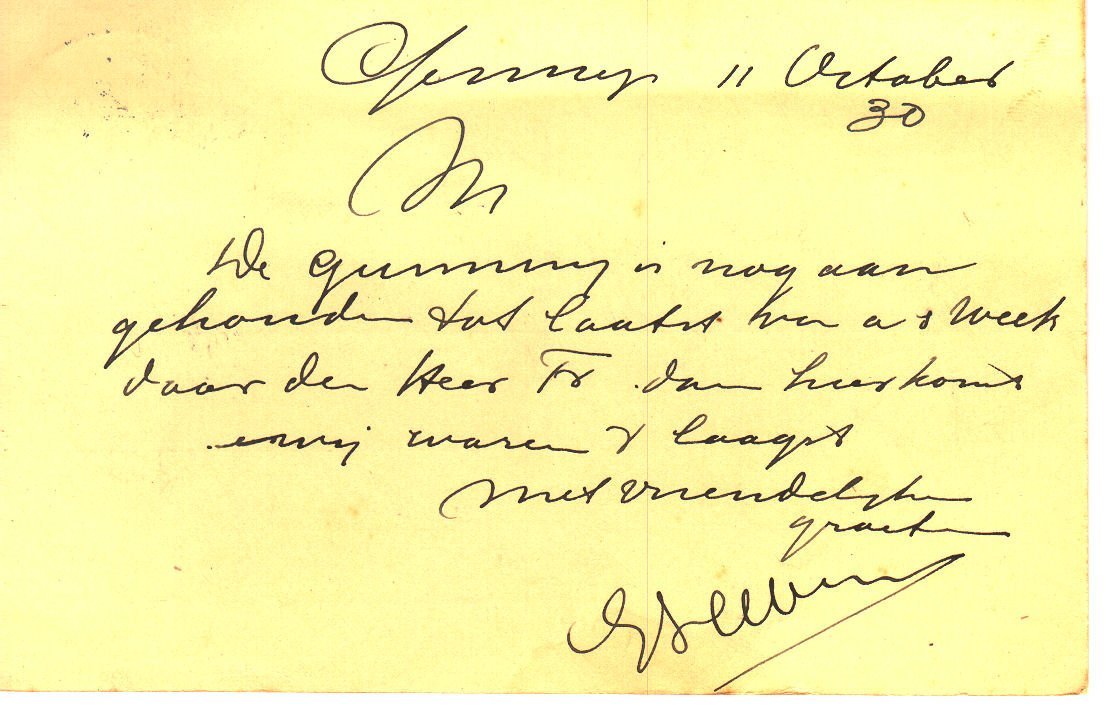 Gennep 11 October
30
M
De gunning is nog aan
gehouden tot laatst van a s Week
daar den Heer Fr dan hier komt
enwij waren 't laagst
met vriendelijke
groeten